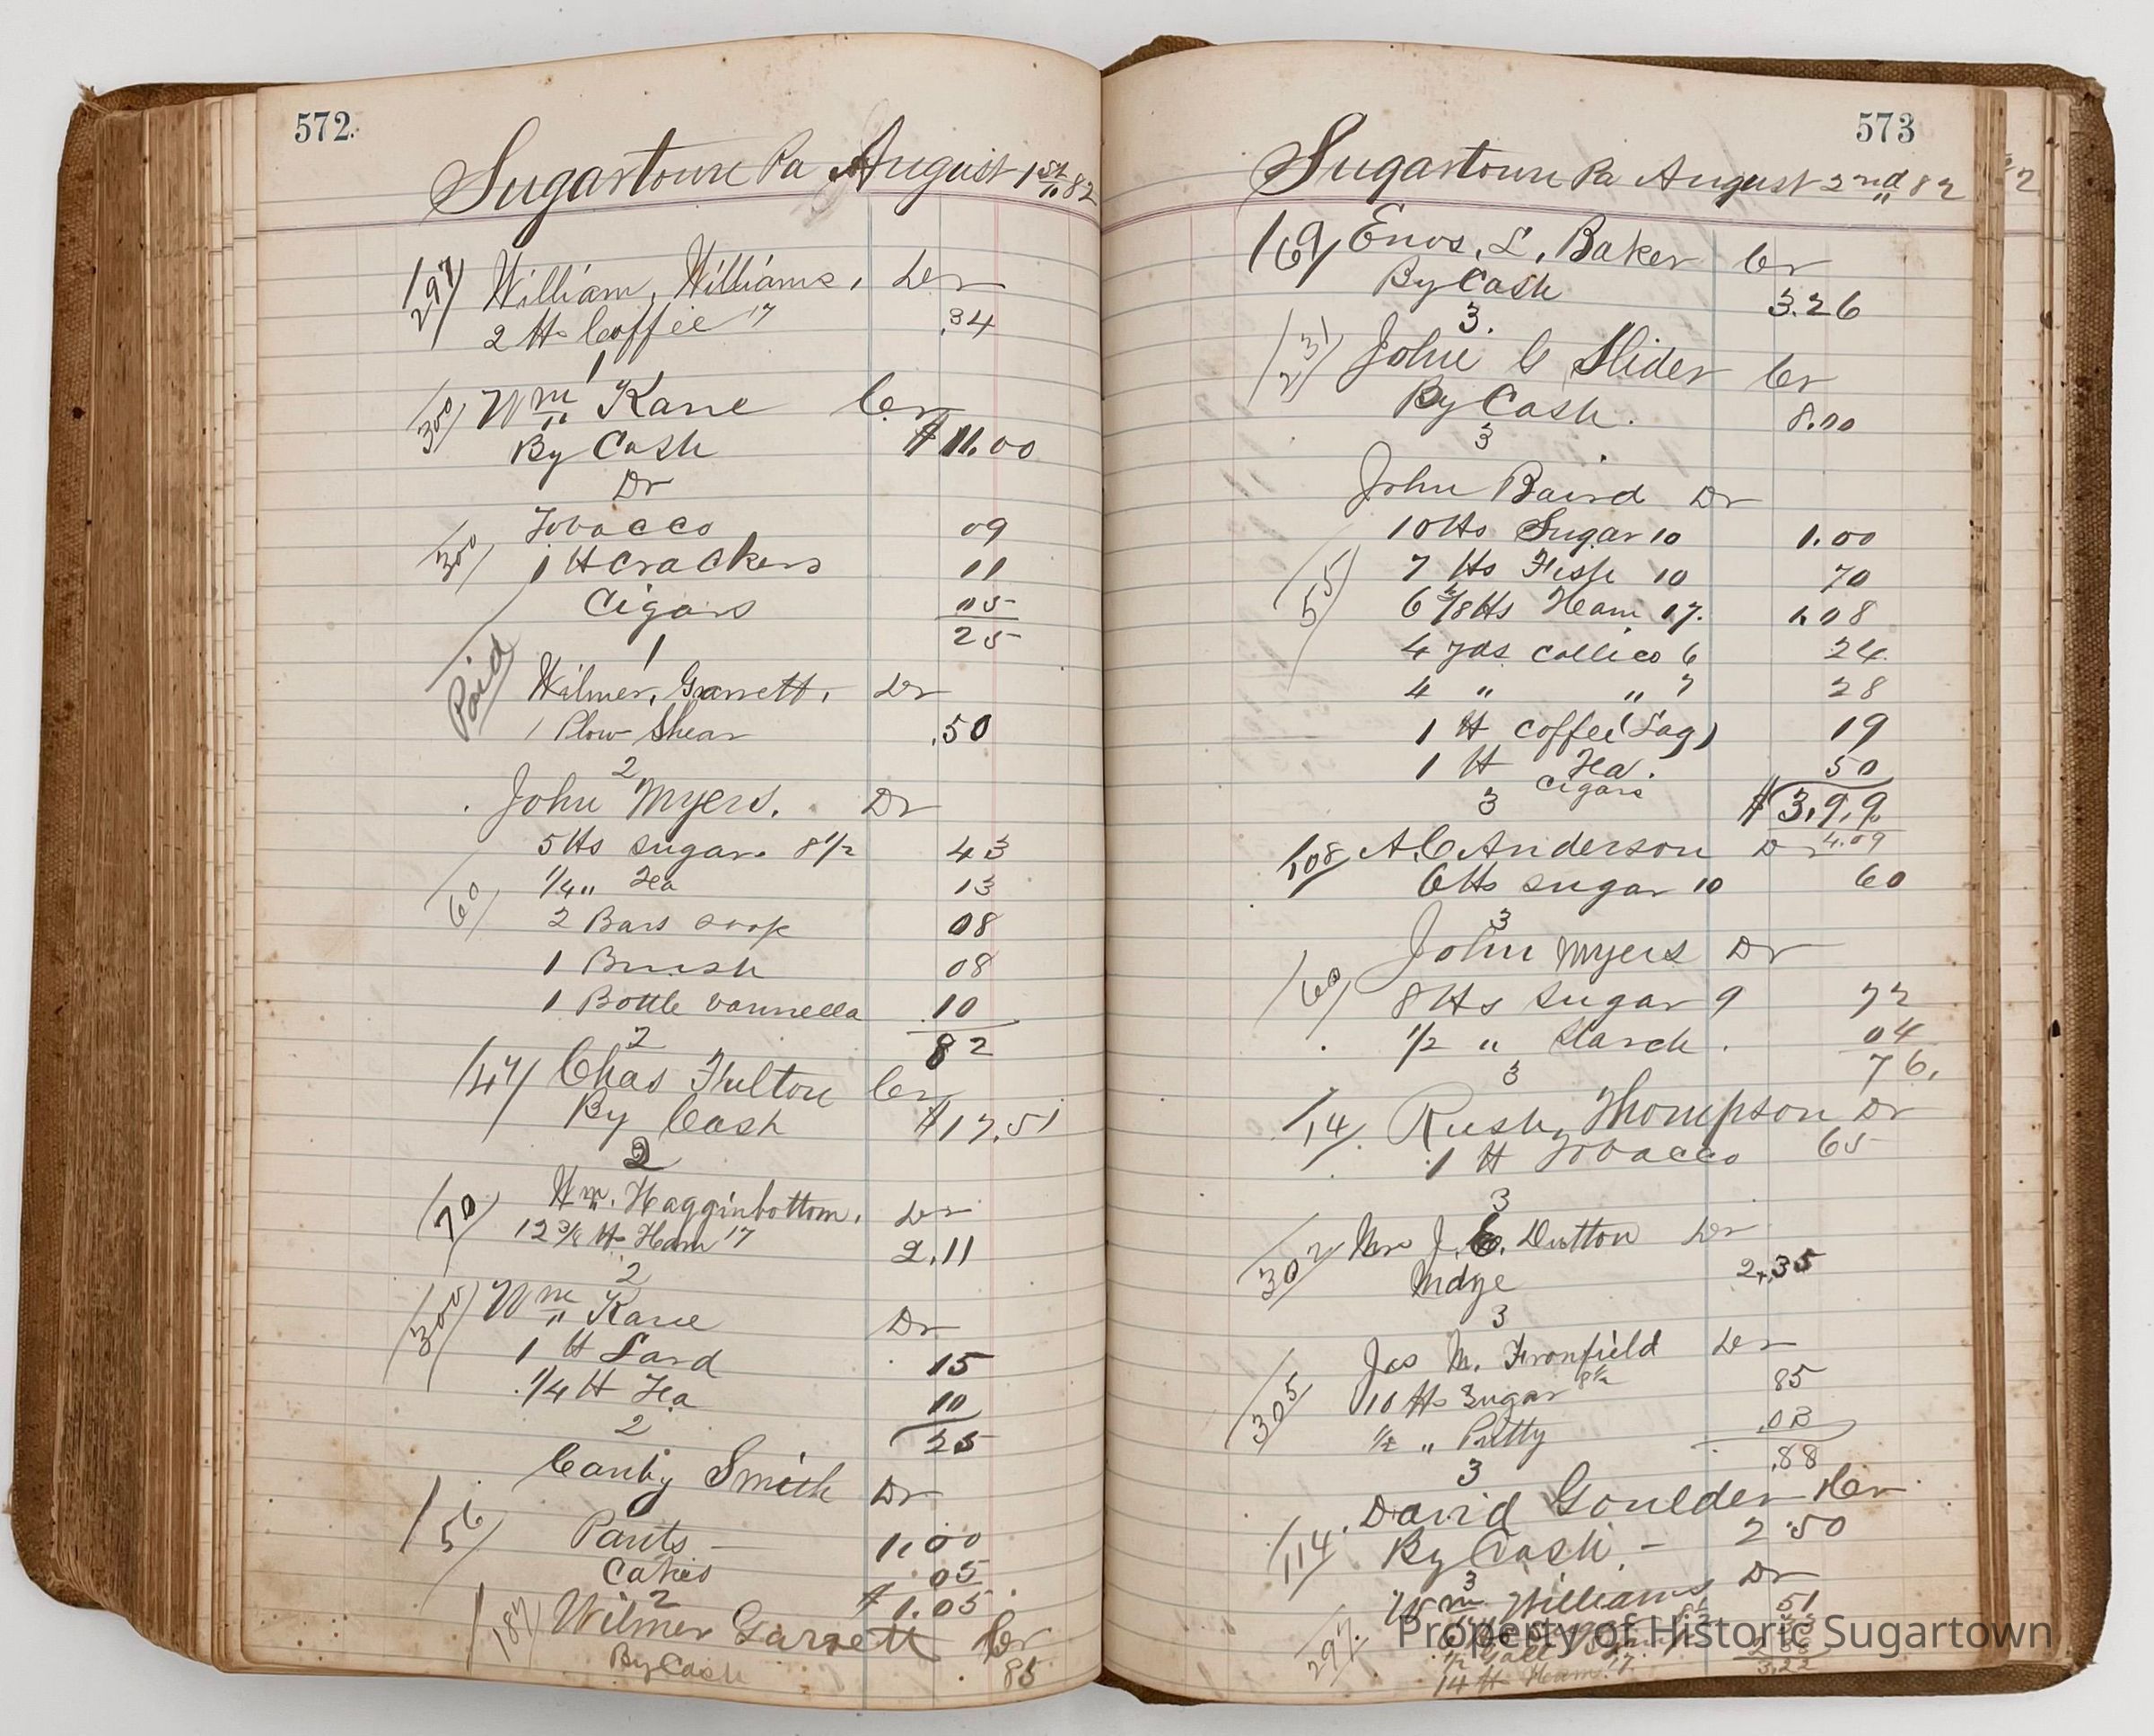 572.
Sugartown Pa August 1st 82
297 William, Williams, Dr
2 lb Coffie 17 .34
1
300 Wm Kane Cr
By Cash $11.00
Dr
Tobacco 09
300 1 lb Crackers 11
Cigars 05
25
1
Paid
Wilmer, Garrett, Dr
1 Plow Shear .50
2
John Myers. Dr
5 lbs sugar. 8 1/2 43
60 1/4 " Tea 13
2 Bars soap 08
1 Brush 08
1 Bottle vannella .10
82
2
47 Chas Fulton Cr
By Cash $17.51
2
70 Wm. Hagginbottom, Dr
12 3/8 lb Ham 17 2.11
2
300 Wm Kane Dr
1 lb Lard 15
1/4 lb Tea 10
25
2
Canby Smith Dr
56 Pants — 1.00
Cakes .05
$1.05
2
187 Wilmer Garrett Cr
By Cash .85
573
Sugartown Pa August 2nd 82
169 Enos, L, Baker Cr
By Cash 3.26
3.
231 John G Slider Cr
By Cash. 8.00
3
John Baird Dr
10 lbs Sugar 10 1.00
7 lbs Fish 10 70
55 6 3/8 lbs Ham 17. 1.08
4 yds callico 6 24
4 " " 7 28
1 lb coffee (Lag) 19
1 lb Tea. 50
Cigars
$3.99
4.09
3
108 A C Anderson Dr
6 lbs sugar 10 60
3
John Myers Dr
60 8 lbs Sugar 9 72
1/2 " Starch. 04
76.
3
14 Rush, Thompson Dr
1 lb Tobacco 65
3
302 J. Dutton Dr
Mdse 2.35
3
Jas M. Fronfield Dr
305 10 lbs Sugar 8 1/2 85
1/2 " Putty .03
.88
3
David Goulder Cr
114 By Cash. — 2.50
3
Wm Williams Dr
51
297.
1/2 Gall
14 lb Ham 17.
3.22
Property of Historic Sugartown